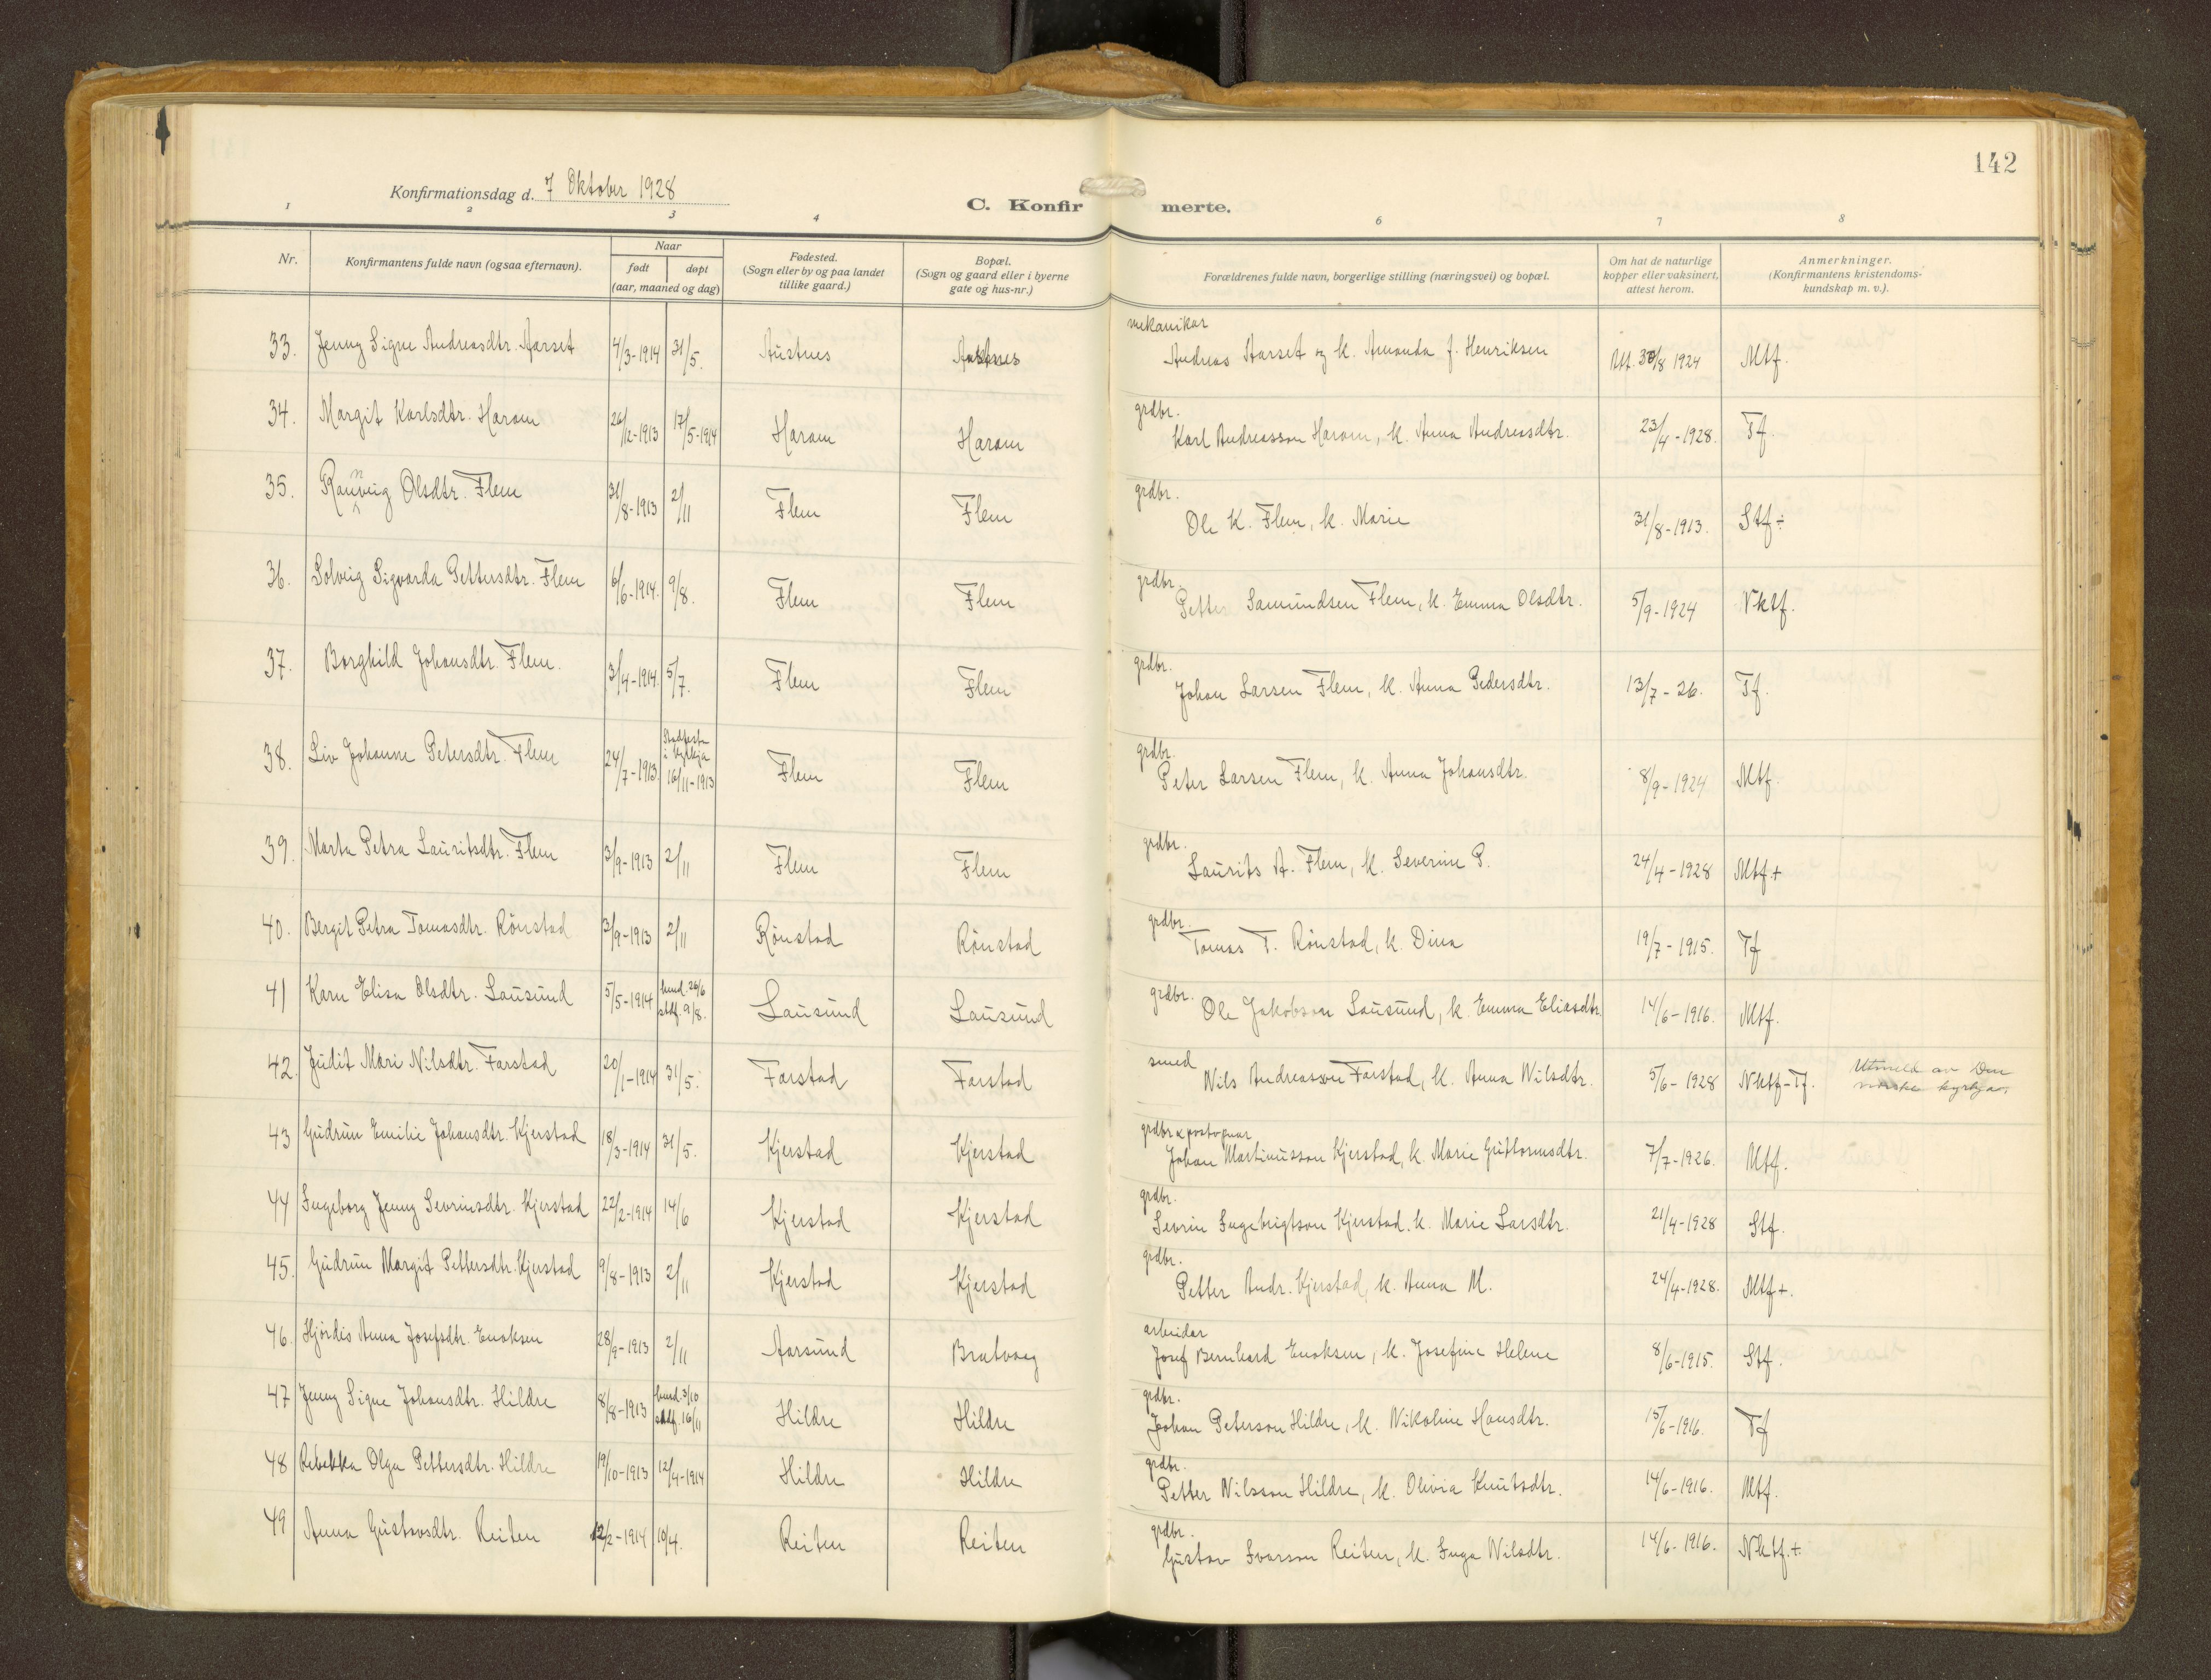 142
Konfirmationsdag d. 7 Oktober 1928
C. Konfirmerte.
1 2 3 4 6 7 8
Nr. Konfirmantens fulde navn (ogsaa efternavn). Naar født døpt (aar, maaned og dag) Fødested. (Sogn eller by og paa landet tillike gaard.) Bopæl. (Sogn og gaard eller i byerne gate og hus-nr.) Forældrenes fulde navn, borgerlige stilling (næringsvei) og bopæl. Om hat de naturlige kopper eller vaksinert, attest herom. Anmerkninger. (Konfirmantens kristendoms-kundskap m. v.).
mekanikar
33. Jenny Signe Andreasdtr. Aarset 4/3-1914 31/5. Austnes Austnes Andreas Aarset og k. Amanda f. Henriksen Att. 30/8 1924 Mtf.
grdbr.
34. Margit Karlsdtr. Haram 26/12-1913 17/5-1914 Haram Haram Karl Andreasson Haram, k. Anna Andreasdtr. 23/4-1928. Tf.
grdbr.
35. Rannveig Olsdtr. Flem 31/8-1913 2/11 Flem Flem Ole K. Flem, k. Marie 31/8-1913. Stf÷
grdbr.
36. Solveig Sigvarda Pettersdtr. Flem 6/6-1914. 9/8. Flem Flem Petter Samundsen Flem, k. Emma Olsdtr. 5/9-1924 Nktf.
grdbr.
37. Borghild Johansdtr. Flem. 3/4-1914. 5/7. Flem Flem Johan Larsen Flem, k. Anna Pedersdtr. 13/7-26. Tf.
grdbr.
38. Liv Johanne Petersdtr. Flem 24/7-1913. Stadfesta i kyrkja 16/11-1913 Flem Flem Peter Larsen Flem, k. Anna Johansdtr. 8/9-1924 Mtf.
grdbr.
39. Marta Petra Lauritsdtr. Flem 3/9-1913 2/11 Flem Flem Laurits A. Flem, k. Severine P. 24/4-1928 Mtf.+
grdbr.
40. Bergit Petra Tomasdtr. Rønstad 3/9-1913 2/11 Rønstad Rønstad Tomas T. Rønstad, k. Dina 19/7-1915. Tf
grdbr.
41 Karn Elisa Olsdtr. Lausund 5/5-1914 hmd. 26/6 stdf. 9/8. Lausund Lausund Ole Jakobson Lausund, k. Emma Eliasdtr. 14/6-1916. Mtf.
smed
42. Judit Mari Nilsdtr. Farstad 20/1-1914 31/5. Farstad Farstad Nils Andreasson Farstad, k. Anna Nilsdtr. 5/6-1928 Nktf-Tf. Utmeld av Den norske kyrkja.
grdbr & postopnar
43 Gudrun Emilie Johansdtr. Kjerstad 18/3-1914 31/5. Kjerstad Kjerstad Johan Martinusson Kjerstad, k. Marie Guttormsdtr. 7/7-1926. Mtf.
grdbr.
44 Ingeborg Jenny Sevrinsdtr. Kjerstad 22/2-1914 14/6 Kjerstad Kjerstad Sevrin Ingebrigtson Kjerstad. k. Marie Larsdtr. 21/4-1928 Stf.
grdbr.
45. Gudrun Margit Pettersdtr. Kjerstad 9/8-1913 2/11 Kjerstad Kjerstad Petter Andr. Kjerstad, k. Anna M. 24/4-1928. Mtf+.
arbeidar
46. Hjørdis Anna Josefsdtr. Enoksen 28/9-1913 2/11 Aarsund Bratvaag Josef Bernhard Enoksen, k. Josefine Helene 8/6-1915. Stf.
grdbr.
47 Jenny Signe Johansdtr. Hildre 8/8-1913 hmd. 3/10 stdf. 16/11 Hildre Hildre Johan Peterson Hildre, k. Nikoline Hansdtr. 15/6-1916. Tf
grdbr.
48 Rebekka Olga Pettersdtr. Hildre 19/10-1913 12/4-1914 Hildre Hildre Petter Nilsson Hildre, k. Olivia Knutsdtr. 14/6-1916. Mtf.
grdbr.
49 Anna Gustavsdtr. Reiten 12/2-1914 10/4. Reiten Reiten Gustav Ivarson Reiten, k. Inga Nilsdtr. 14/6-1916. Nktf.+.